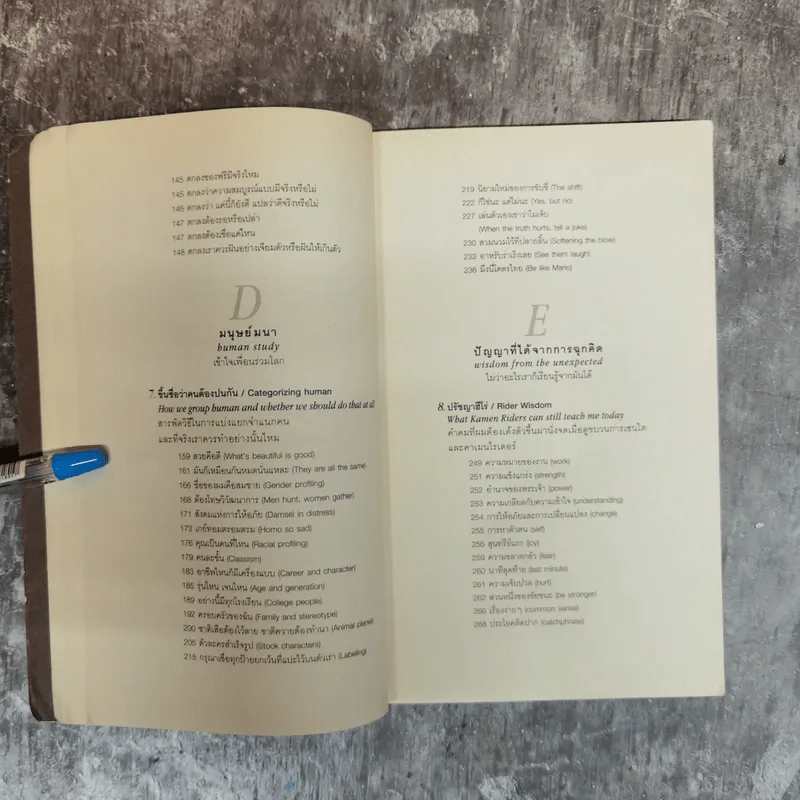 145 ตกลงของฟรีมีจริงไหม
145 ตกลงว่าความสมบูรณ์แบบมีจริงหรือไม่
146 ตกลงว่า แค่นี้ก็ยังดี แปลว่าดีจริงหรือไม่
147 ตกลงต้องรอหรือเปล่า
147 ตกลงต้องเชื่อแค่ไหน
148 ตกลงเราควรฝันอย่างเจียมตัวหรือฝันให้เกินตัว
D
มนุษย์มนา
human study
เข้าใจเพื่อนร่วมโลก
7. ขึ้นชื่อว่าคนต้องปนกัน / Categorizing human
How we group human and whether we should do that at all
สารพัดวิธีในการแบ่งแยกจำแนกคน
และที่จริงเราควรทำอย่างนั้นไหม
159 สวยคือดี (What's beautiful is good)
161 มันก็เหมือนกันหมดนั่นแหละ (They are all the same)
166 ชื่อของผมคือสมชาย (Gender profiling)
168 ต้องโทษวิวัฒนาการ (Men hunt, women gather)
171 สังคมแห่งการให้อภัย (Damsel in distress)
173 เกย์ทอมตรอมตรม (Homo so sad)
176 คุณเป็นคนที่ไหน (Racial profiling)
179 คนละชั้น (Classism)
183 อาชีพไหนก็มีเครื่องแบบ (Career and character)
185 รุ่นไหน เจนไหน (Age and generation)
189 อย่างนี้มีทุกโรงเรียน (College people)
192 ครอบครัวของฉัน (Family and stereotype)
200 ชาติเสือต้องไว้ลาย ชาติควายต้องทำนา (Animal planet)
205 ตัวละครสำเร็จรูป (Stock characters)
215 กรุณาเชื่อทุกป้ายยกเว้นที่แปะไว้บนตัวเรา (Labeling)
219 นิยามใหม่ของการขับขี่ (The shift)
222 ก็ใช่นะ แต่ไม่นะ (Yes, but no)
227 เล่นตัวเองเราว่าไม่เจ็บ
(When the truth hurts, tell a joke)
230 สวมนวมไว้ที่ปลายลิ้น (Softening the blow)
233 อาหรับร่าเริงเลย (See them laugh)
236 มึงนี่โคตรไทย (Be like Mano)
E
ปัญญาที่ได้จากการฉุกคิด
wisdom from the unexpected
ไม่ว่าอะไรเราก็เรียนรู้จากมันได้
8. ปรัชญาฮีโร่ / Rider Wisdom
What Kamen Riders can still teach me today
คำคมที่ผมต้องเด้งตัวขึ้นมานั่งจดเมื่อดูขบวนการเซนไต
และคาเมนไรเดอร์
249 ความหมายของงาน (work)
251 ความแข็งแกร่ง (strength)
252 อำนาจของพระเจ้า (power)
253 ความเกลียดกับความเข้าใจ (understanding)
254 การให้อภัยและการเปลี่ยนแปลง (change)
255 การหาตัวตน (self)
256 สุนทรีย์แรก (joy)
259 ความขลาดกลัว (fear)
260 นาทีสุดท้าย (last minute)
261 ความเจ็บปวด (hurt)
262 ส่วนหนึ่งของชัยชนะ (be stronger)
266 เรื่องง่าย ๆ (common sense)
268 ประโยคติดปาก (catchphrase)